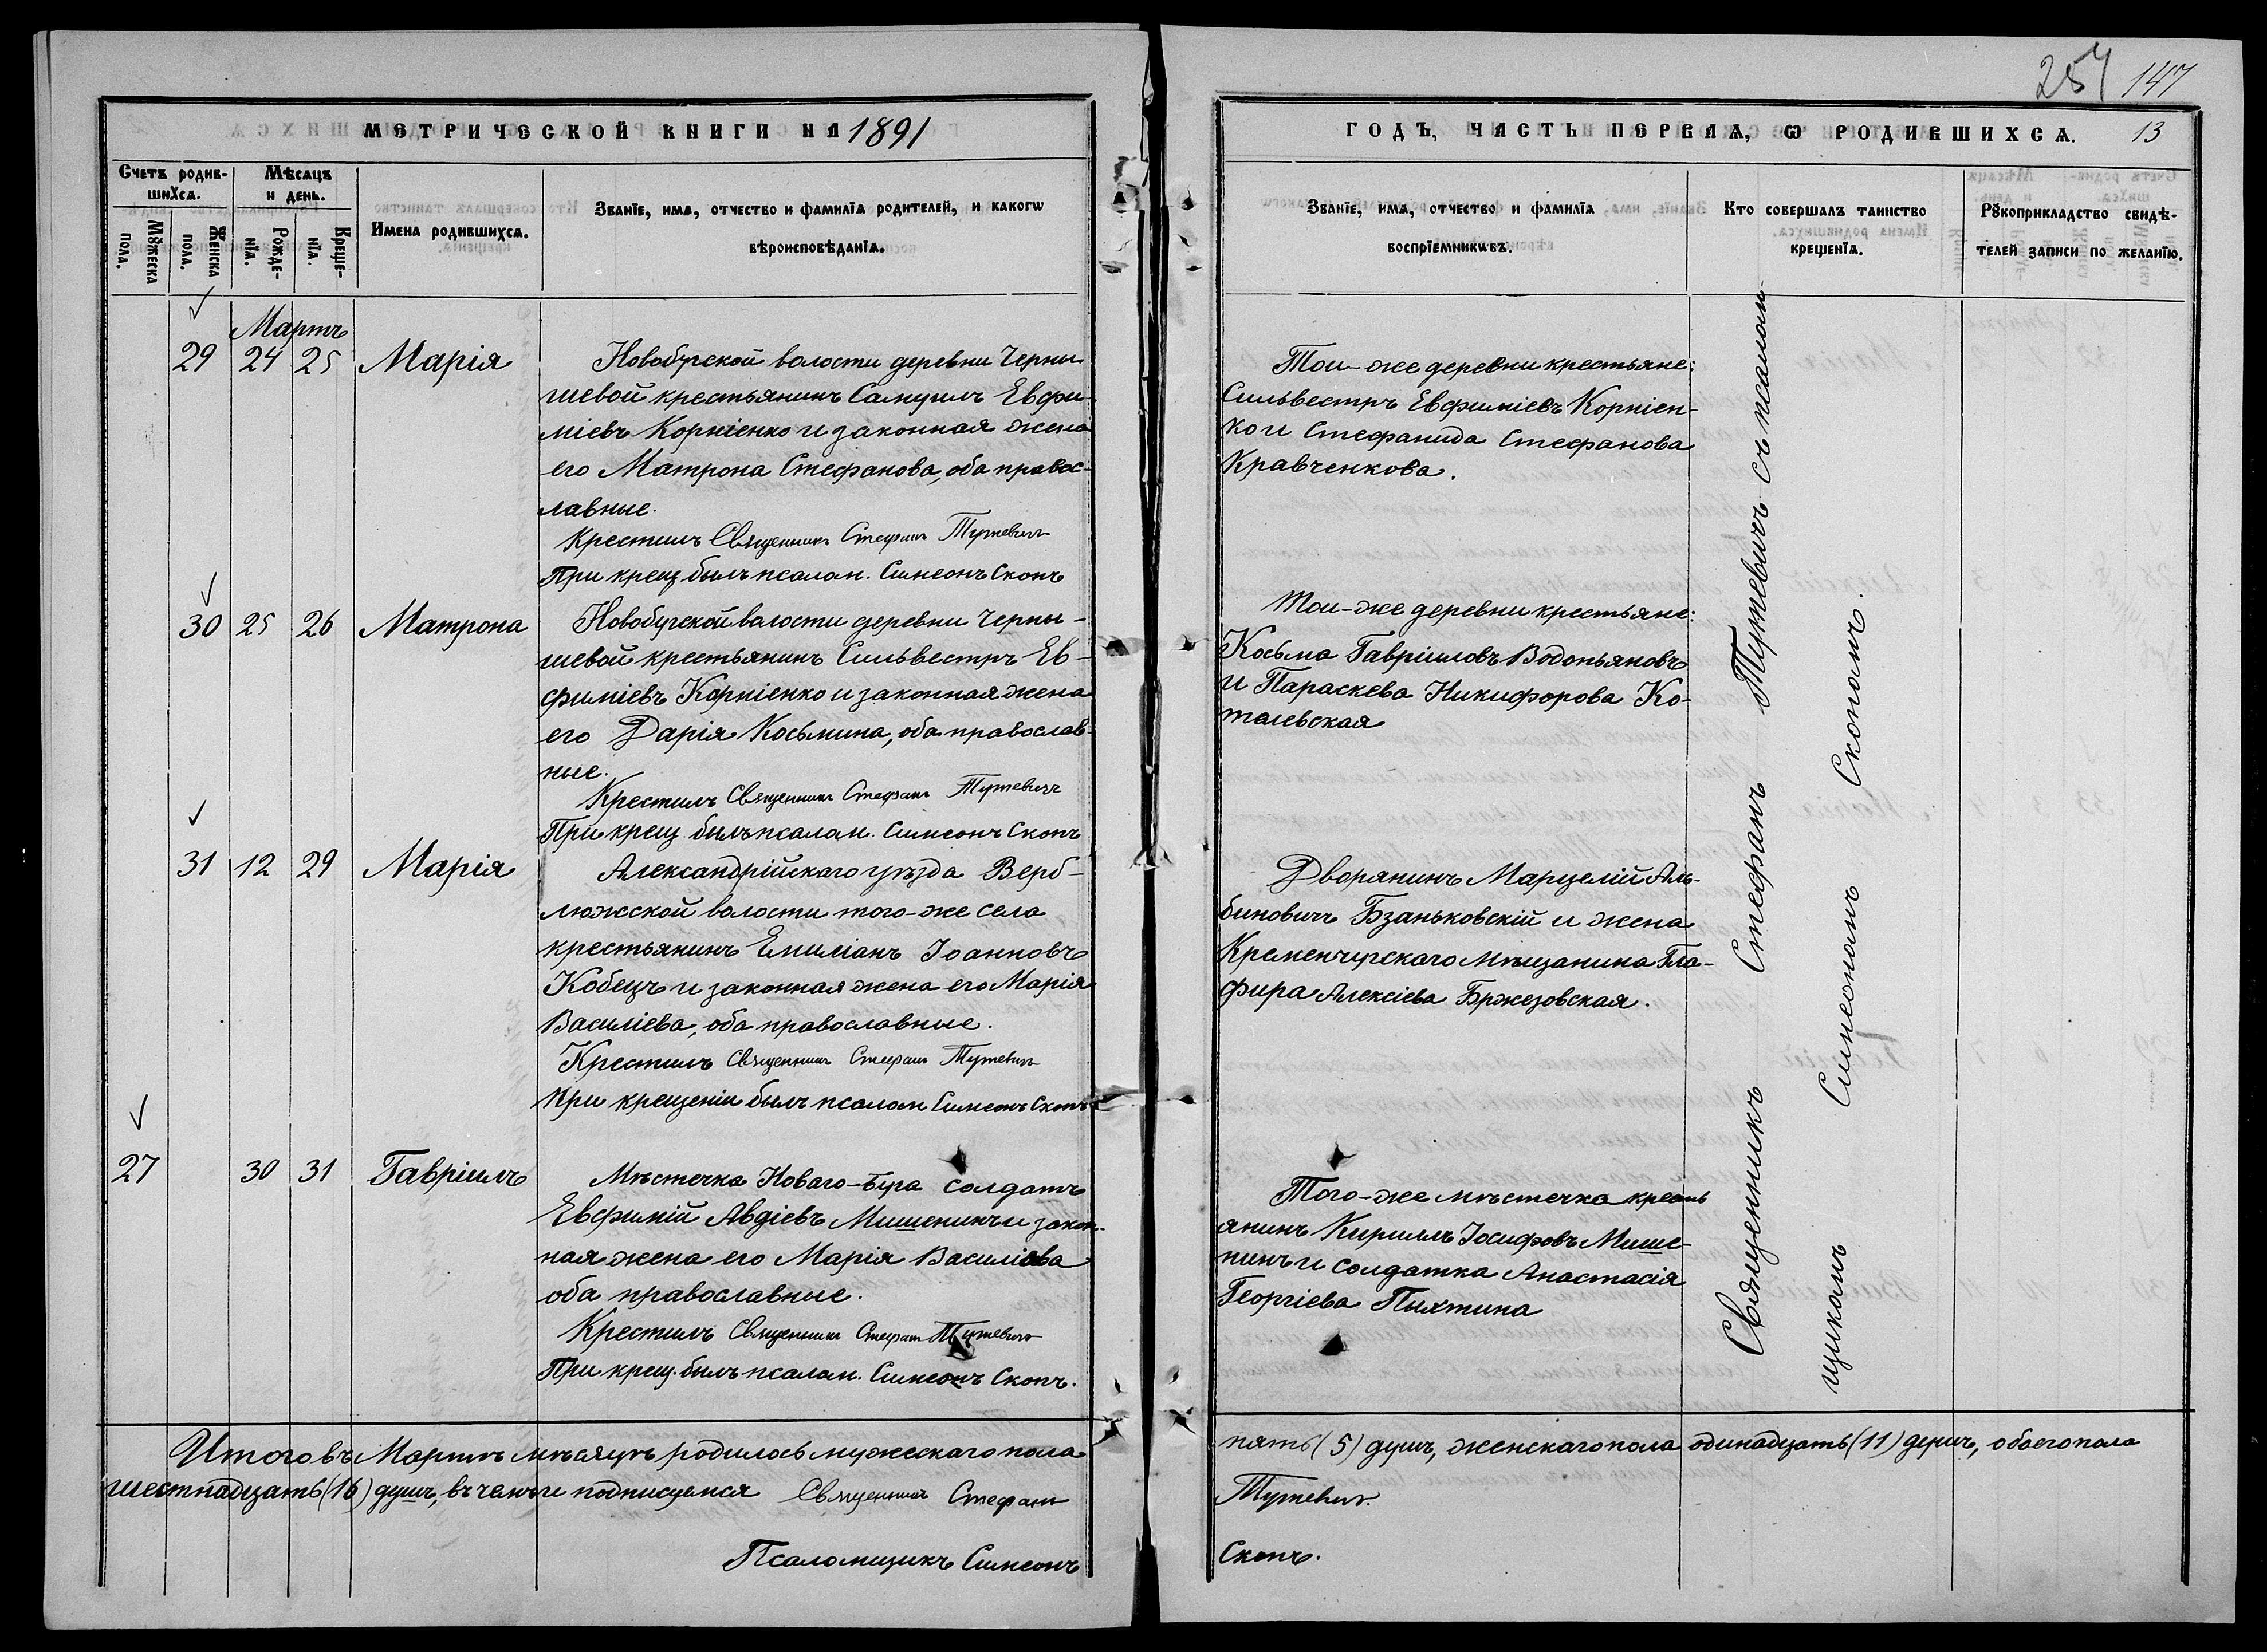 257 147
МЕТРИЧЕСКОЙ КНИГИ НА 1891
ГОДЪ, ЧАСТЬ ПЕРВАЯ, Ѡ РОДИВШИХСѦ. 13
Счетъ родив-
шихсѧ.
Мꙋжеска
пола.
Женска
пола.
Мѣсѧцъ
и день.
Рожде-
нїѧ.
Креще-
нїѧ.
Имена родившихсѧ.
Званїе, имѧ, отчество и фамилїѧ родителей, и какогѡ
вѣроисповѣданїѧ.
Званїе, имѧ, отчество и фамилїѧ
воспрїемникѡвъ.
Кто совершалъ таинство
крещенїѧ.
Рꙋкоприкладство свидѣ-
телей записи по желанїю.
Мартъ
29 24 25 Марія
Новобугской волости деревни Черны
шевой крестьянинъ Самуилъ Евфи-
міевъ Корніенко и законная жена
его Матрона Стефанова, оба правос-
лавные.
Крестилъ Священникъ Стефанъ Тутевичъ
При крещ. былъ псалом. Симеонъ Скопъ
Той-же деревни крестьяне:
Сильвестръ Евфиміевъ Корніен-
ко и Стефанида Стефанова
Кравченкова.
30 25 26 Матрона
Новобугской волости деревни Черны-
шевой крестьянинъ Сильвестръ Ев-
фиміевъ Корніенко и законная жена
его Дарія Косьмина, оба православ-
ные.
Крестилъ Священникъ Стефанъ Тутевичъ
При крещ. былъ псалом. Симеонъ Скопъ
Той-же деревни крестьяне:
Косьма Гавріиловъ Водопьяновъ
и Параскева Никифорова Ко-
талевская
31 12 29 Марія
Александрійскаго уѣзда Верб-
люжской волости того-же села
крестьянинъ Емиліанъ Іоанновъ
Кобецъ и законная жена его Марія
Василіева, оба православные.
Крестилъ Священникъ Стефанъ Тутевичъ
При крещеніи былъ псалом Симеонъ Скопъ
Дворянинъ Марцелій Аль-
биновичъ Бзаньковскій и жена
Кременчугскаго мѣщанина Гла-
фира Алексіева Бржезовская.
27 30 31 Гавріилъ
Мѣстечка Новаго-Буга солдатъ
Евфимій Авдіевъ Мишенинъ и закон-
ная жена его Марія Василіева
оба православные.
Крестилъ Священникъ Стефанъ Тутевичъ
При крещ. былъ псалом. Симеонъ Скопъ.
Того-же мѣстечка кресть
янинъ Кириллъ Іосифовъ Мише-
нинъ и солдатка Анастасія
Георгіева Пихтина
Священникъ Стефанъ Тутевичъ съ псалом-
щикомъ Симеономъ Скопомъ.
Итого въ Мартѣ мѣсяцѣ родилось мужескаго пола
пять (5) душъ, женскаго пола одинадцать (11) душъ, обоего пола
шестнадцать (16) душъ, въ чемъ и подписуемся Священникъ Стефанъ
Тутевичъ.
Псаломщикъ Симеонъ
Скопъ.